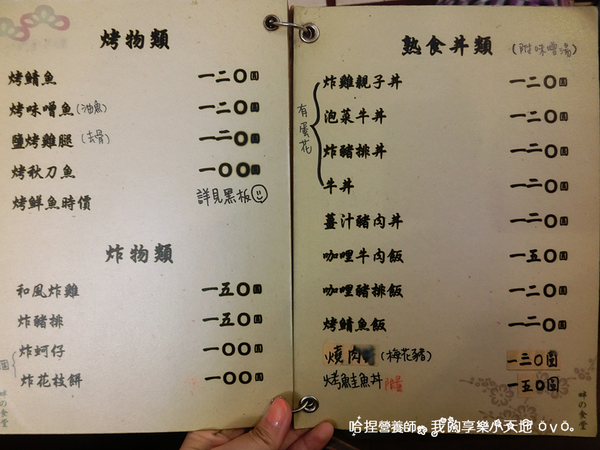 烤物類
烤鯖魚 一二〇圓
烤味噌魚(油魚) 一二〇圓
鹽烤雞腿(去骨) 一二〇圓
烤秋刀魚 一〇〇圓
烤鮮魚時價 詳見黑板
炸物類
和風炸雞 一五〇圓
炸豬排 一五〇圓
炸蚵仔 一〇〇圓
炸花枝餅 一〇〇圓
圓
畔の食堂
熟食丼類 (附味噌湯)
有蛋花
炸雞親子丼 一二〇圓
泡菜牛丼 一二〇圓
炸豬排丼 一二〇圓
牛丼 一二〇圓
薑汁豬肉丼 一二〇圓
咖哩牛肉飯 一五〇圓
咖哩豬排飯 一二〇圓
烤鯖魚飯 一二〇圓
燒肉 (梅花豬) 一三〇圓
烤鮭魚丼 限量 一五〇圓
畔の食堂
哈捏營養師。我的享樂小天地 ovo。